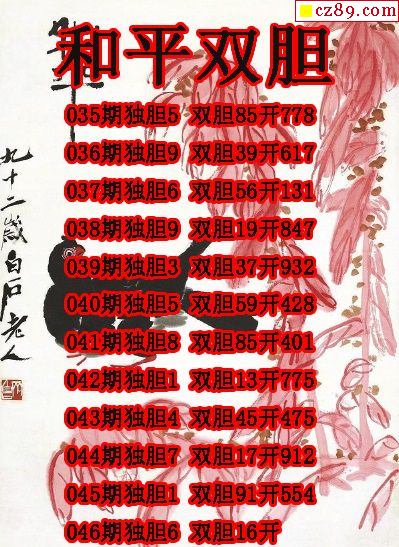 cz89.com
和平双胆
035期独胆5 双胆85开778
036期独胆9 双胆39开617
037期独胆6 双胆56开131
038期独胆9 双胆19开847
039期独胆3 双胆37开932
040期独胆5 双胆59开428
041期独胆8 双胆85开401
042期独胆1 双胆13开775
043期独胆4 双胆45开475
044期独胆7 双胆17开912
045期独胆1 双胆91开554
046期独胆6 双胆16开
九十二岁白石老人